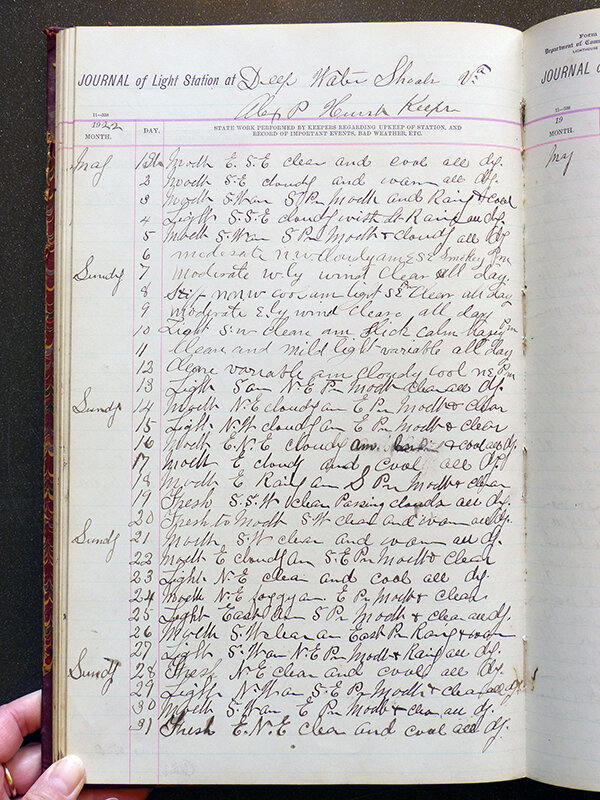 JOURNAL of Light Station at Deep Water Shoals Va
Alex P Hursh Keeper
11—338
1922
MONTH. DAY. STATE WORK PERFORMED BY KEEPERS REGARDING UPKEEP OF STATION, AND RECORD OF IMPORTANT EVENTS, BAD WEATHER, ETC.
May 1st Modt E. S. E clear and cool all dy.
2 Modt S. E cloudy and warm all dy.
3 Modt S.W an S Pm Modt and Rain & cool
4 Light S. S. E cloudy with Rain all dy.
5 Modt S. W an S Pm Modt & cloudy all dy
6 moderate n.w cloudy am E S E Smokey Pm
Sundy 7 moderate w.ly wind clear all day.
8 Stiff NNW cool am light S E Clear all day
9 moderate E.ly wind cleare all day
10 Light S. w cleare am. calm hazy Pm
11 Cleare and mild light variable all day
12 Cleare variable am cloudy cool n E Pm
13 Light S an N. E Pm Modt clear all dy.
Sundy 14 Modt N. E cloudy am E Pm Modt & clear
15 Light N. W cloudy am E Pm Modt & clear
16 Modt E. N. E cloudy am & cool all dy.
17 Modt E cloudy and cool all dy.
18 Modt E Rainy am S Pm Modt & clear
19 Fresh S. S. W clear Passing clouds all dy.
20 Fresh to Modt S. W clear and warm all dy.
Sundy 21 Modt S. W clear and warm all dy.
22 Modt E cloudy am S. E Pm Modt & clear
23 Light N. E clear and cool all dy.
24 Modt N. E foggy am E Pm Modt & clear
25 Light East am S Pm Modt & clear all dy.
26 Modt S. W clear am East Pm Rain & warm
27 Light S. W an N. E Pm Modt & Rain all dy.
Sundy 28 Fresh N. E clear and cool all dy.
29 Light N. W an S. E Pm Modt & clear all dy
30 Modt S. W an E Pm Modt & clear all dy.
31 Fresh E. N. E clear and cool all dy.
Form
Department of Com
LIGHTHOUSE
JOURNAL of
11—338
19
MONTH.
May